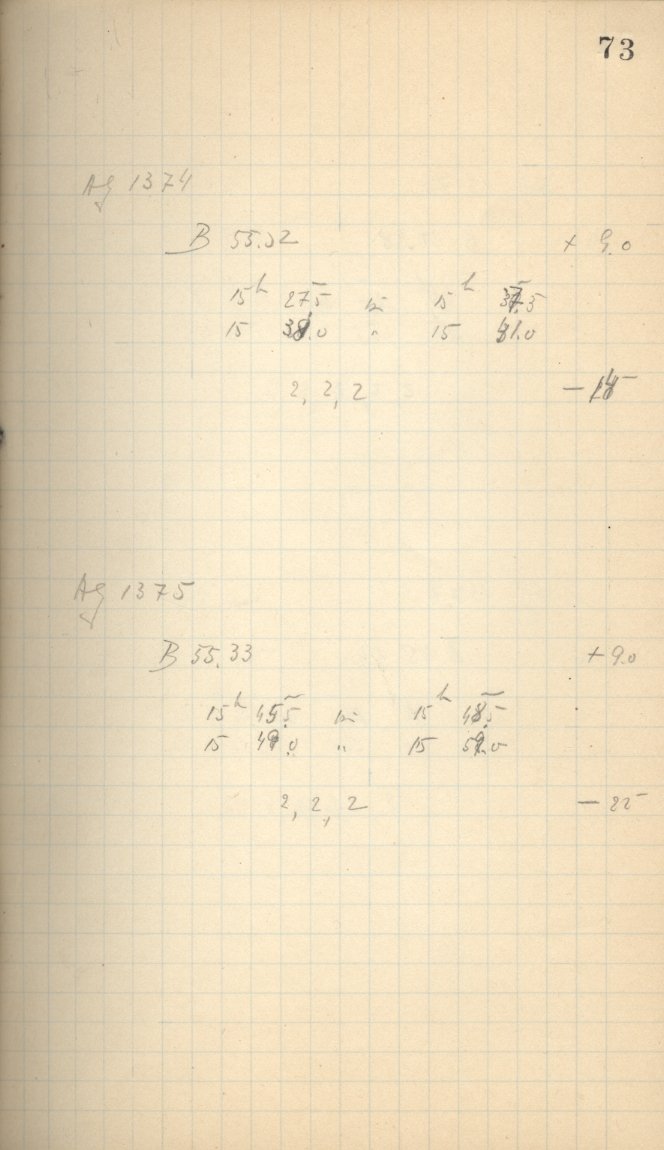 73
Ag 1374
B 55.32 + 9.0
15h 27.5 bis 15h 37.5
15 38.0 " 15 41.0
2, 2, 2
Ag 1375
B 55.33 + 9.0
15h 45.5 bis 15h 48.5
15 49.0 " 15 59.0
2, 2, 2 - 22